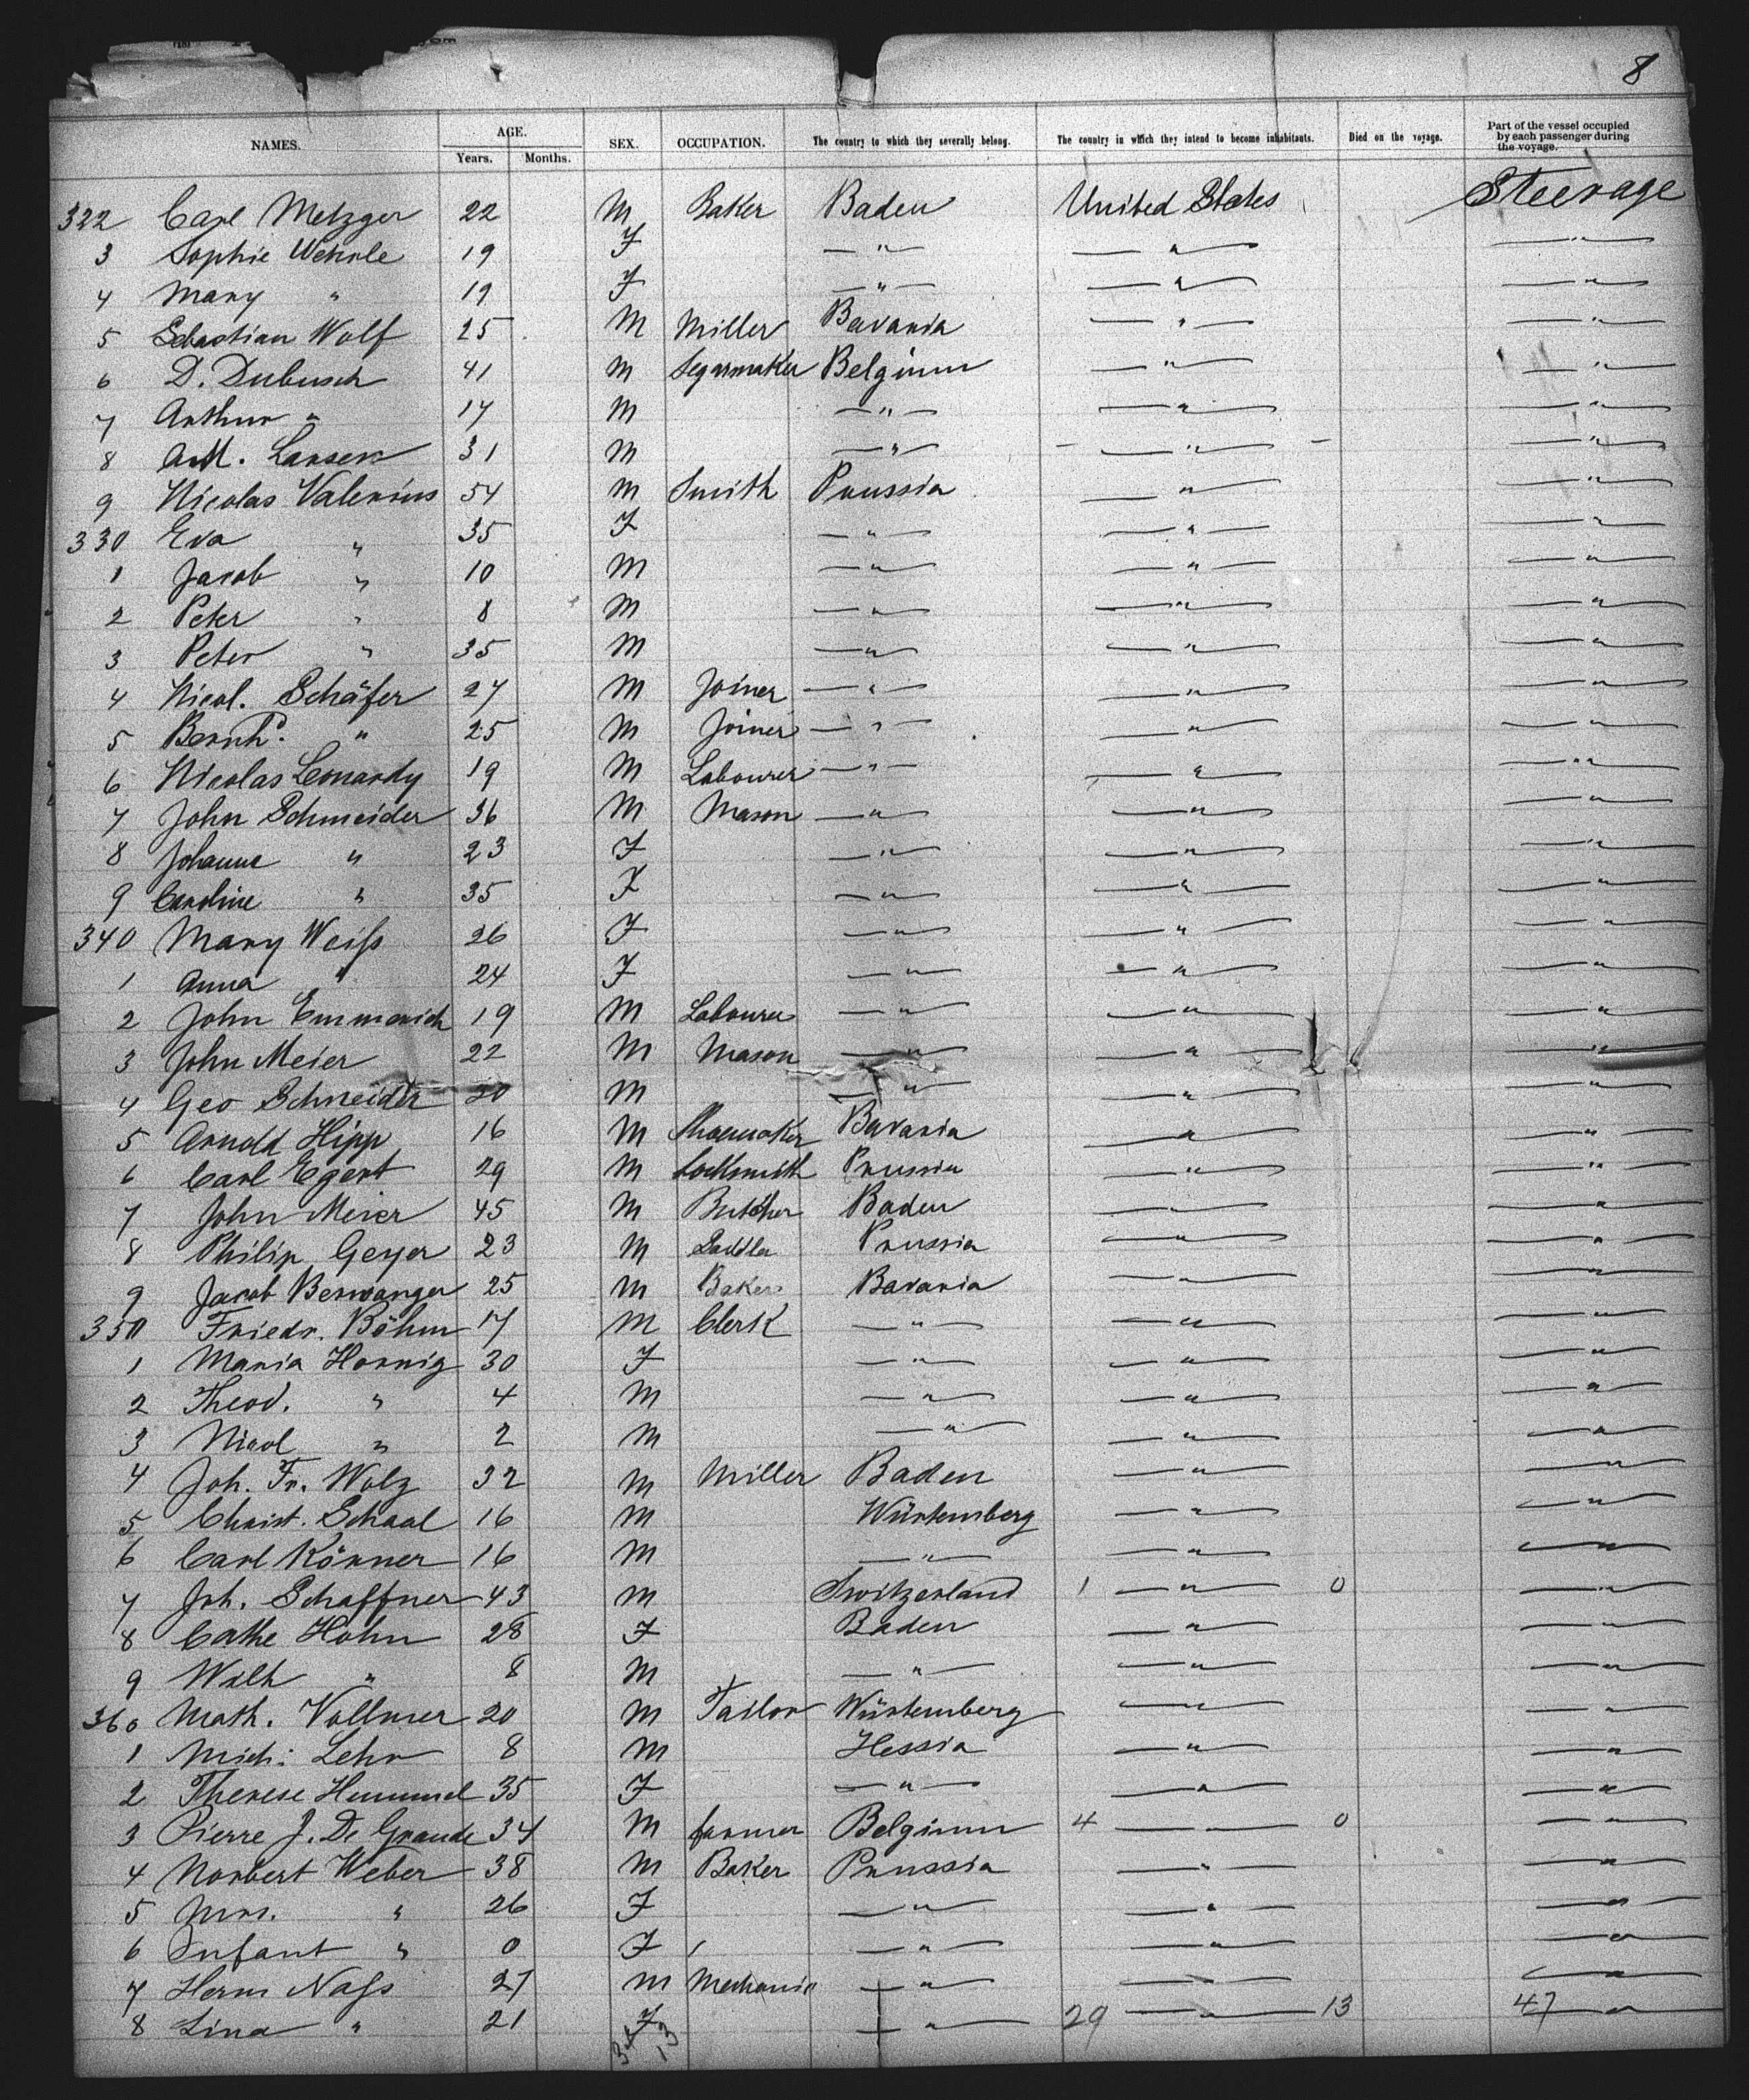 8
NAMES. AGE. Years. Months. SEX. OCCUPATION. The country to which they severally belong. The country in which they intend to become inhabitants. Died on the voyage. Part of the vessel occupied by each passenger during the voyage.
322 Carl Metzger 22 M Baker Baden United States Steerage
3 Sophie Wehrle 19 F — " — — " — — " —
4 Mary " 19 F — " — — " — — " —
5 Sebastian Wolf 25 M Miller Bavaria — " — — " —
6 D. Dubusch 41 M Segarmaker Belgium — " — — " —
7 Arthur " 17 M — " — — " — — " —
8 Larsen 31 M — " — — " — — " —
9 Nicolas Valerius 54 M Smith Prussia — " — — " —
330 Eva " 35 F — " — — " — — " —
1 Jacob " 10 M — " — — " — — " —
2 Peter " 8 M — " — — " — — " —
3 Peter " 35 M — " — — " — — " —
4 Nicol. Schäfer 27 M Joiner — " — — " — — " —
5 Bernhd. " 25 M Joiner — " — — " — — " —
6 Nicolas Leonardy 19 M Labourer — " — — " — — " —
7 John Schneider 36 M Mason — " — — " — — " —
8 Johanne " 23 F — " — — " — — " —
9 Caroline " 35 F — " — — " — — " —
340 Mary Weiss 26 F — " — — " — — " —
1 Anna " 24 F — " — — " — — " —
2 John Emmerich 19 M Labourer — " — — " — — " —
3 John Meier 22 M Mason — " — — " — — " —
4 Geo Schneider M — " — — " — — " —
5 Arnold Hipp 16 M Shoemaker Bavaria — " — — " —
6 Carl Egert 29 M Locksmith Prussia — " — — " —
7 John Meier 45 M Butcher Baden — " — — " —
8 Philip Geyer 23 M Saddler Prussia — " — — " —
9 Jacob Berwanger 25 M Baker Bavaria — " — — " —
350 Friedr. Böhm 17 M Clerk — " — — " — — " —
1 Maria Hornig 30 F — " — — " — — " —
2 Theod. " 4 M — " — — " — — " —
3 Nicol " 2 M — " — — " — — " —
4 Joh. Fr. Wolz 32 M Miller Baden — " — — " —
5 Christ. Schaal 16 M Würtemberg — " — — " —
6 Carl Körner 16 M — " — — " — — " —
7 Joh. Schaffner 43 M Switzerland 1 — " — 0 — " —
8 Cathe Hohn 28 F Baden — " — — " —
9 Wilh " 8 M — " — — " — — " —
360 Math. Vollmer 20 M Tailor Würtemberg — " — — " —
1 Mich: Lehr 8 M Hessia — " — — " —
2 Therese Hummel 35 F — " — — " — — " —
3 Pierre J. De Grande 34 M farmer Belgium 4 — — 0 — " —
4 Norbert Weber 38 M Baker Prussia — " — — " —
5 Mrs. " 26 F — " — — " — — " —
6 Infant " 0 F — " — — " — — " —
7 Herm Nass 27 M Mechanic — " — — " — — " —
8 Lina " 21 F — " — 29 — " — 13 47 — " —
13